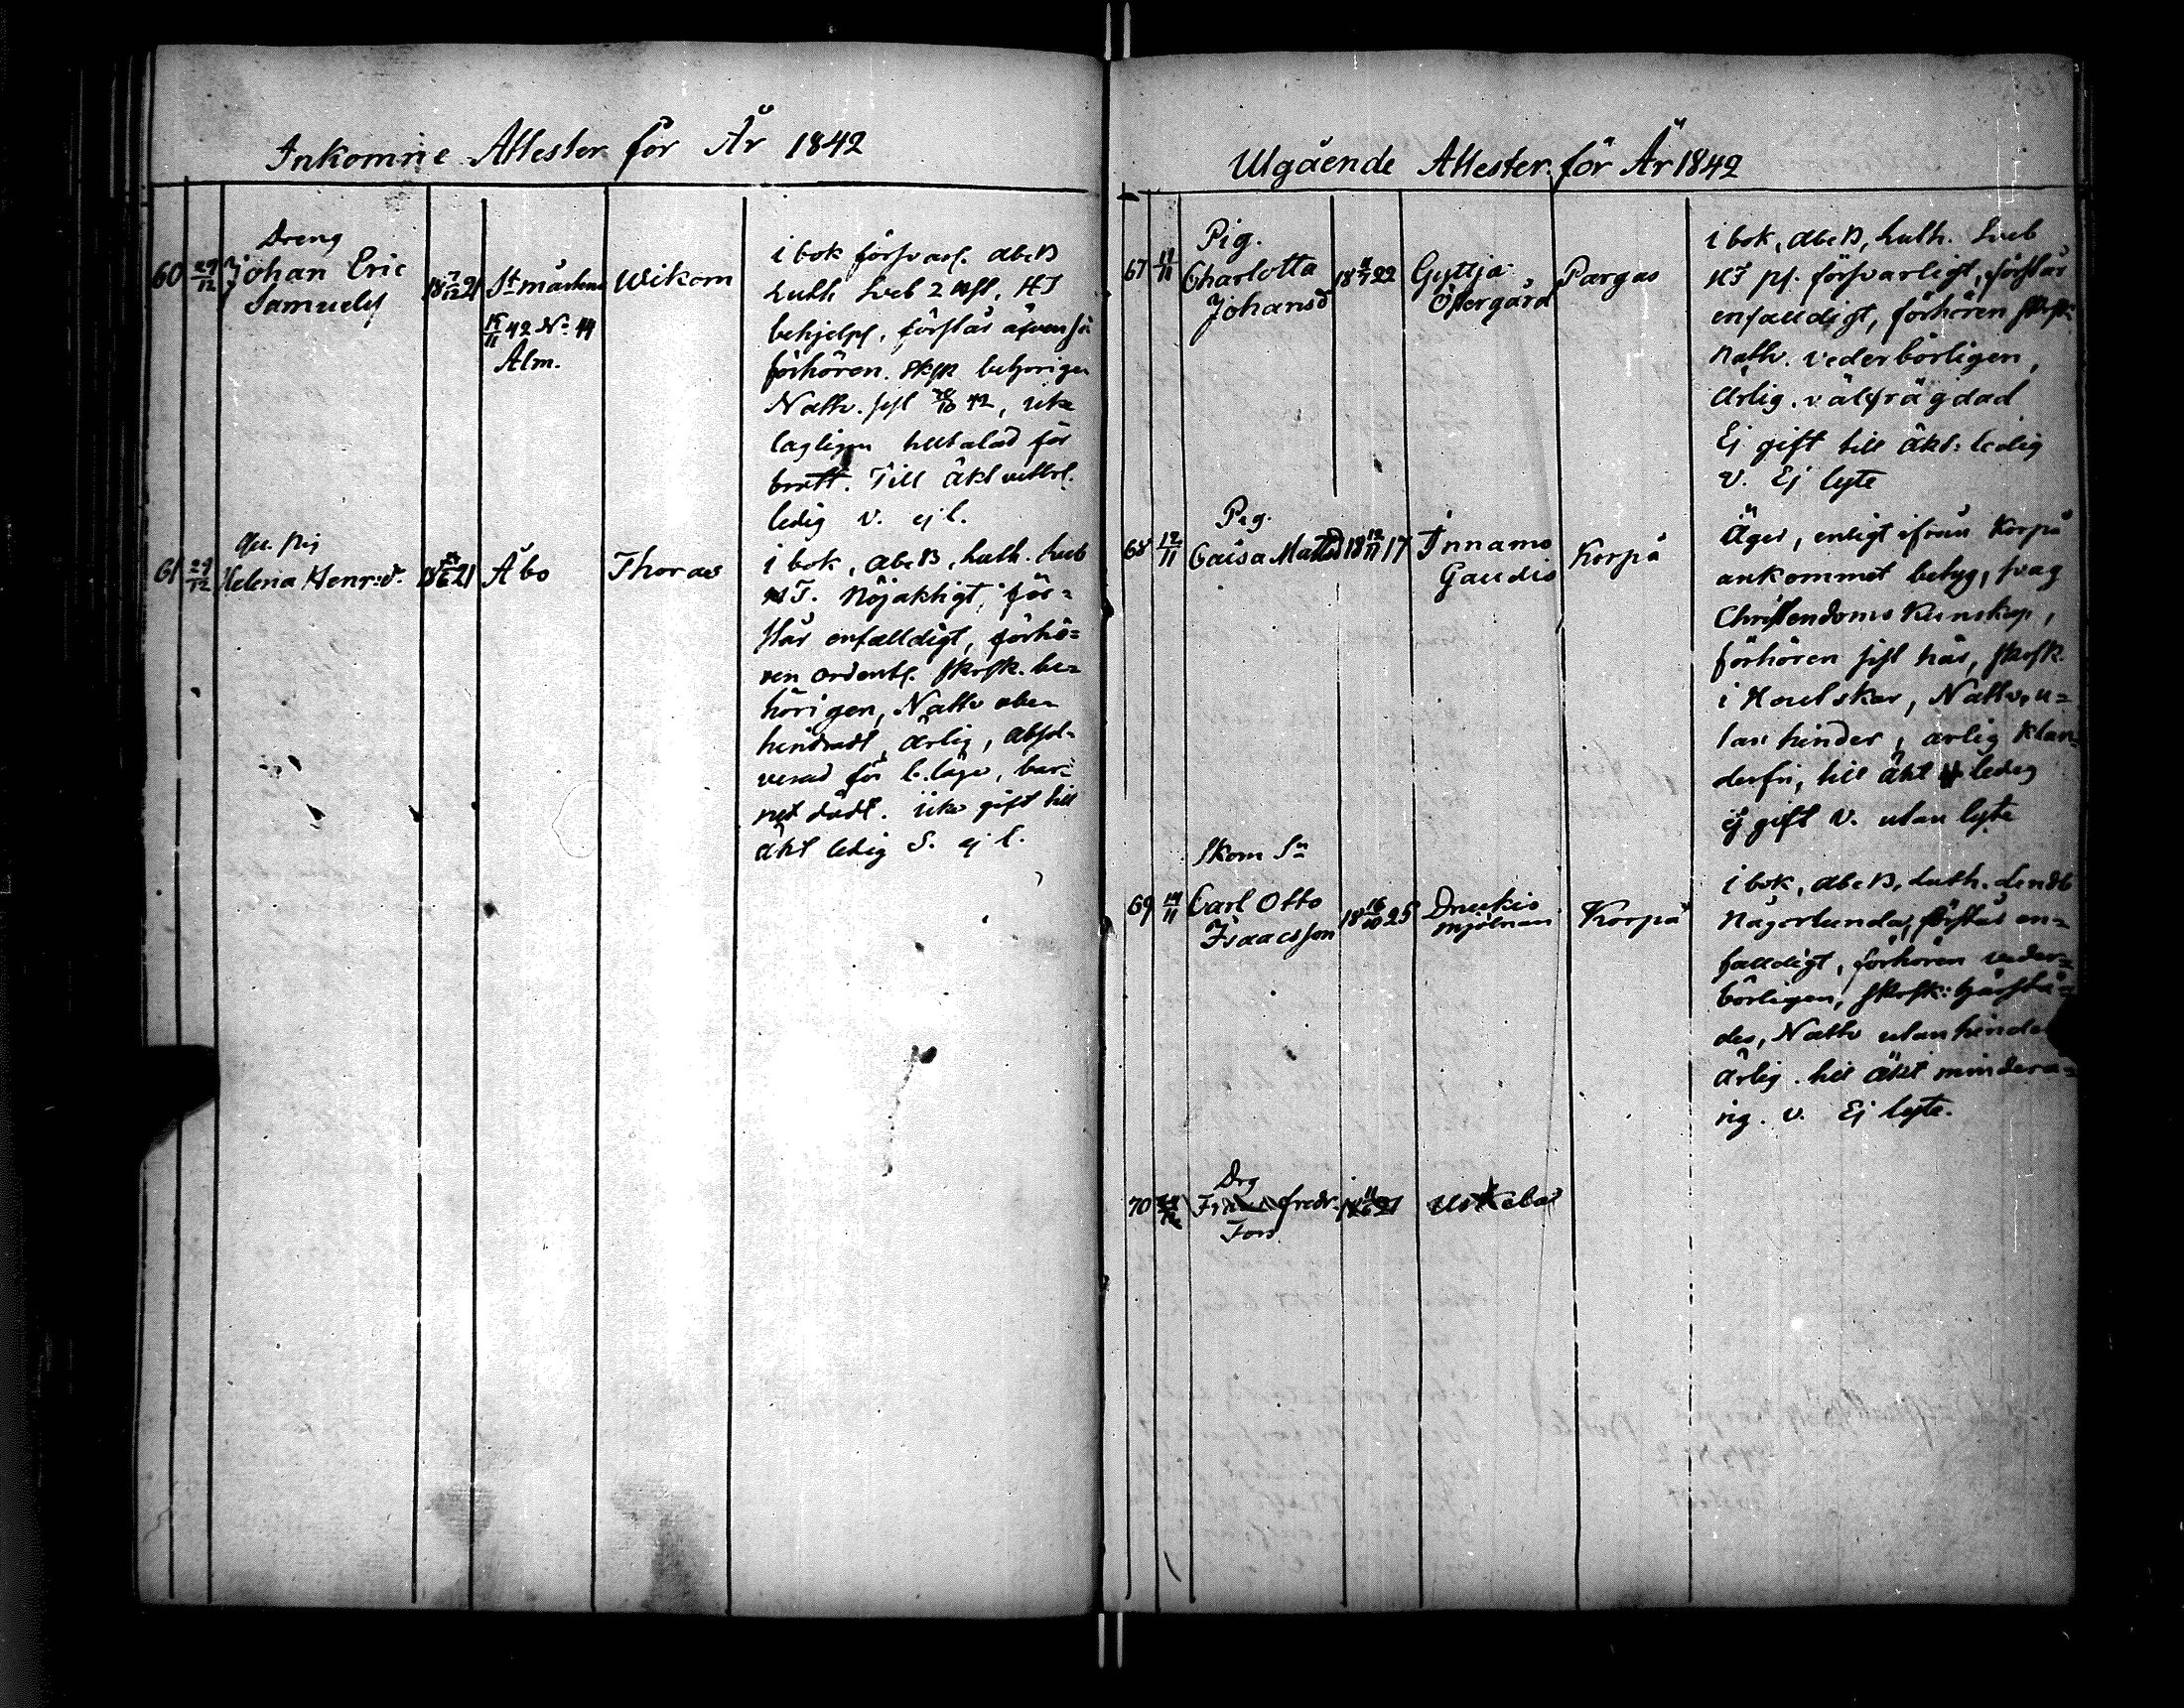 Inkomne Attester för År 1842
60 29/12 Dreng
Johan Eric
Samuels
18 7/12 21
St mårtens
42 No 44
Alm.
Wikom
i bok försvarl. abcB
Luth Sveb 2 HT
behjelpl. förstår äfven så
förhören. skpr behörigen
Nattv. sist 42, icke
lagligen tilltalad för
brott. Till äkt
ledig v. ej l.
61 29/12
Helena Henr:d.
21
Åbo
Thoras
i bok, abcB, Luth. Sveb
HT. Nöjaktigt, för-
står enfalldigt, förhö-
ren ordentl. skrsk. be-
hörigen, Nattv obe-
hindradt, ärlig, absol-
verad för l.läge, bar-
net dödt. icke gift till
äkt ledig S. ej l.
Utgående Attester för År 1842
67
Pig.
Charlotta
Johansd
22
Gyttja
Östergård
Pargas
i bok, abcB, Luth. Sveb
HT ps. försvarligt, förstår
enfalldigt, förhören skrsk:
Nattv. vederbörligen,
ärlig. välfrägdad
Ej gift till äkt: ledig
V. Ej lyte
68 12/11
Pig.
Caisa Mattsd
18 12/11 17
Innamo
Gaudis
Korpå
Äger, enligt ifrån Korpå
ankommet betyg, svag
Christendoms Kunskap,
förhören sist här, skrsk.
i Houtskär, Nattv. u-
tan hinder, ärlig klan-
derfri, till äkt ledig
ej gift V. utan lyte
69 14/11
Skom Sn
Carl Otto
Isaacsson
18 16/10 25
mjölnan
Korpå
i bok, abcB, Luth.
Någorlunda, förstår en-
falldigt, förhören veder-
börligen, skrsk: härstä-
des, Nattv utan hinder
ärlig. till äkt minderå-
rig. v. Ej lyte.
70
Drg
fredr.
Fors
21